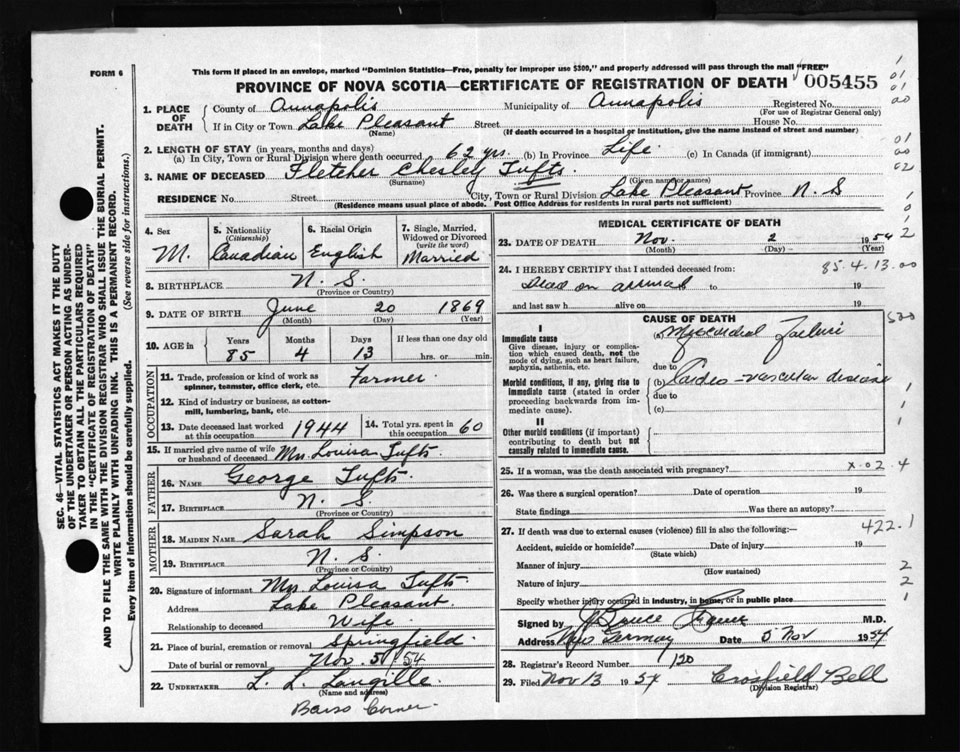 FORM 6
This form if placed in an envelope, marked "Dominion Statistics—Free, penalty for improper use $300," and properly addressed will pass through the mail "FREE"
PROVINCE OF NOVA SCOTIA—CERTIFICATE OF REGISTRATION OF DEATH 005455
1. PLACE OF DEATH
County of Annapolis Municipality of Annapolis Registered No.
(For use of Registrar General only)
If in City or Town Lake Pleasant Street House No.
(Name) (If death occurred in a hospital or institution, give the name instead of street and number)
2. LENGTH OF STAY (in years, months and days)
(a) In City, Town or Rural Division where death occurred 62 yrs. (b) In Province Life (c) In Canada (if immigrant)
3. NAME OF DECEASED Fletcher Chesley Tufts.
(Surname) (Given name or names)
RESIDENCE No. Street City, Town or Rural Division Lake Pleasant Province N. S
(Residence means usual place of abode. Post Office Address for residents in rural parts not sufficient)
4. Sex
M.
5. Nationality
(Citizenship)
Canadian
6. Racial Origin
English
7. Single, Married, Widowed or Divorced
(write the word)
Married
8. BIRTHPLACE N. S.
(Province or Country)
9. DATE OF BIRTH June 20 1869
(Month) (Day) (Year)
10. AGE in Years Months Days If less than one day old
85 4 13 hrs. or min.
OCCUPATION
11. Trade, profession or kind of work as
spinner, teamster, office clerk, etc. Farmer.
12. Kind of industry or business, as cotton-
mill, lumbering, bank, etc.
13. Date deceased last worked
at this occupation 1944
14. Total yrs. spent in
this occupation 60
15. If married give name of wife
or husband of deceased Mrs. Louisa Tufts.
FATHER
16. NAME George Tufts.
17. BIRTHPLACE N. S.
(Province or Country)
MOTHER
18. MAIDEN NAME Sarah Simpson
19. BIRTHPLACE N. S.
(Province or Country)
20. Signature of informant Mrs Louisa Tufts
Address Lake Pleasant.
Relationship to deceased Wife
21. Place of burial, cremation or removal Springfield.
Date of burial or removal Nov. 5/54
22. UNDERTAKER L. L. Langille.
(Name and address)
Barss Corner.
MEDICAL CERTIFICATE OF DEATH
23. DATE OF DEATH Nov. 2 1954
(Month) (Day) (Year)
24. I HEREBY CERTIFY that I attended deceased from: 85.4.13.00
Dead on arrival to 19
and last saw h alive on 19
CAUSE OF DEATH
I
Immediate cause
Give disease, injury or complication which caused death, not the mode of dying, such as heart failure, asphyxia, asthenia, etc.
(a) Myocardial Failure
due to
Morbid conditions, if any, giving rise to immediate cause (stated in order proceeding backwards from immediate cause).
(b) Cardio-vascular disease
due to
(c)
II
Other morbid conditions (if important) contributing to death but not causally related to immediate cause.
25. If a woman, was the death associated with pregnancy? X-02.4
26. Was there a surgical operation? Date of operation 19
State findings Was there an autopsy?
27. If death was due to external causes (violence) fill in also the following:— 422.1
Accident, suicide or homicide? Date of injury 19
(State which)
Manner of injury
(How sustained)
Nature of injury
Specify whether injury occurred in industry, in home, or in public place
Signed by M.D.
Address New Germany Date 5 Nov 1954
28. Registrar's Record Number 120
29. Filed Nov 13 1954 Crosfield Bell
(Division Registrar)
SEC. 46—VITAL STATISTICS ACT MAKES IT THE DUTY
OF THE UNDERTAKER OR PERSON ACTING AS UNDER-
TAKER TO OBTAIN ALL THE PARTICULARS REQUIRED
IN THE "CERTIFICATE OF REGISTRATION OF DEATH"
AND TO FILE THE SAME WITH THE DIVISION REGISTRAR WHO SHALL ISSUE THE BURIAL PERMIT.
WRITE PLAINLY WITH UNFADING INK. THIS IS A PERMANENT RECORD.
Every item of information should be carefully supplied. (See reverse side for instructions.)